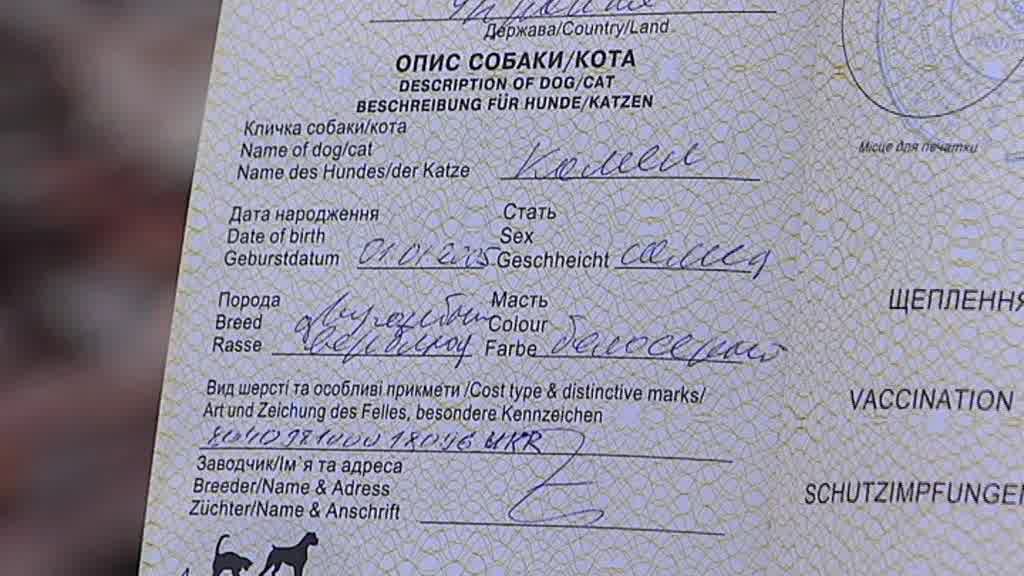 Держава/Country/Land
ОПИС СОБАКИ/КОТА
DESCRIPTION OF DOG/CAT
BESCHREIBUNG FÜR HUNDE/KATZEN
Місце для печатки
Кличка собаки/кота
Name of dog/cat
Name des Hundes/der Katze Камел
Дата народження
Date of birth
Geburstdatum 01.01.2005
Стать
Sex
Geschheicht самец
Порода
Breed двугорбый
Rasse верблюд
Масть
Colour
Farbe белосерый
Вид шерсті та особливі прикмети /Cost type & distinctive marks/
Art und Zeichung des Felles, besondere Kennzeichen
UKR
Заводчик/Ім`я та адреса
Breeder/Name & Adress
Züchter/Name & Anschrift
ЩЕПЛЕННЯ
VACCINATION
SCHUTZIMPFUNGEN